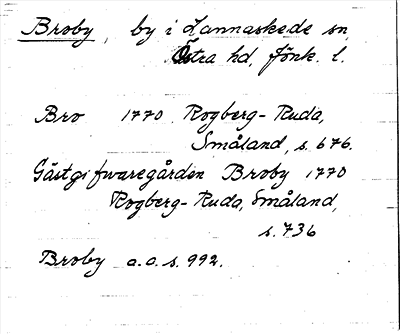 Broby, by i Lannaskede sn,
Östra hd, Jönk. l.
Bro 1770 Rogberg-Ruda,
Småland, s. 676.
Gästgifwaregården Broby 1770
Rogberg-Ruda, Småland,
s. 736
Broby a.a. s. 992.